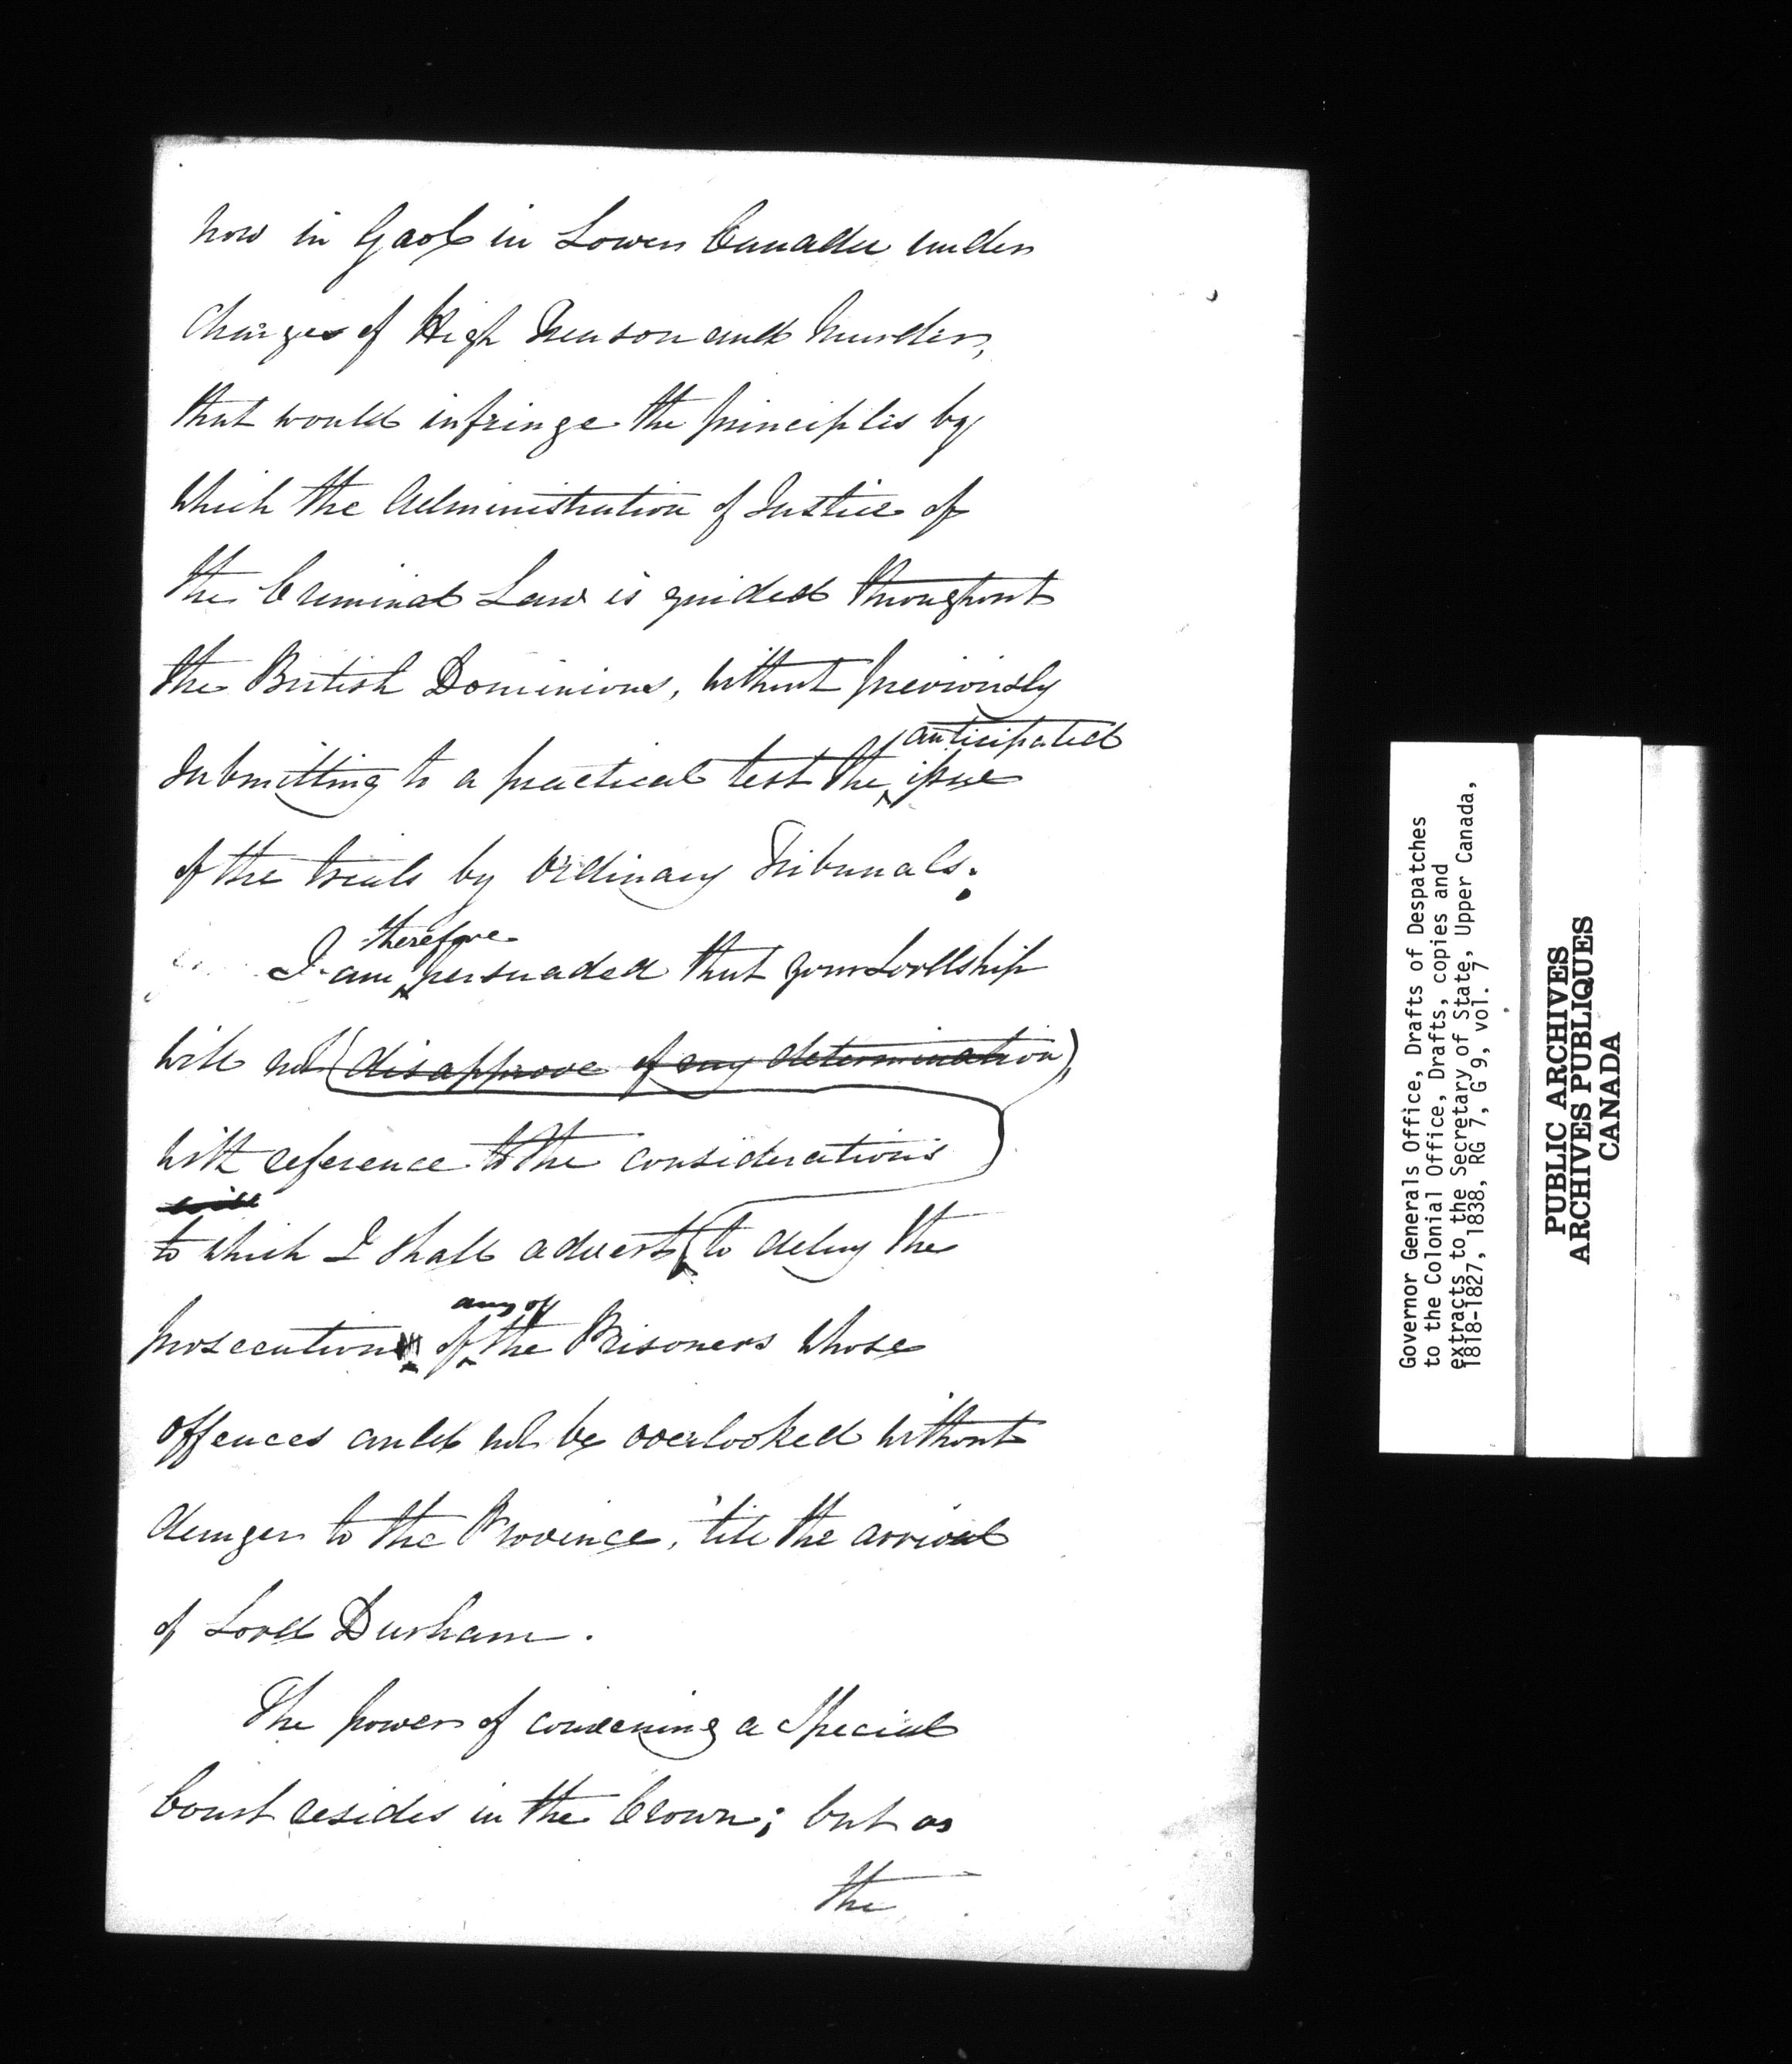 now in Gaol in Lower Canada under
charges of High Treason and Murder,
that would infringe the principles by
which the Administration of Justice of
the Criminal Law is guided throughout
the British Dominions, without previously
anticipated
submitting to a practical test the issue
of the trials by Ordinary Tribunals.
therefore
I am persuaded that your Lordship
will not (disapprove of my determination),
with reference to the considerations
will
to which I shall advert, to delay the
any of
prosecution of the Prisoners whose
offences could not be overlooked without
danger to the Province, 'till the arrival
of Lord Durham.
The power of convening a Special
Court resides in the Crown; but as
the
Governor Generals Office, Drafts of Despatches
to the Colonial Office, Drafts, copies and
extracts to the Secretary of State, Upper Canada,
1818-1827, 1838, RG 7, G 9, vol. 7
PUBLIC ARCHIVES
ARCHIVES PUBLIQUES
CANADA